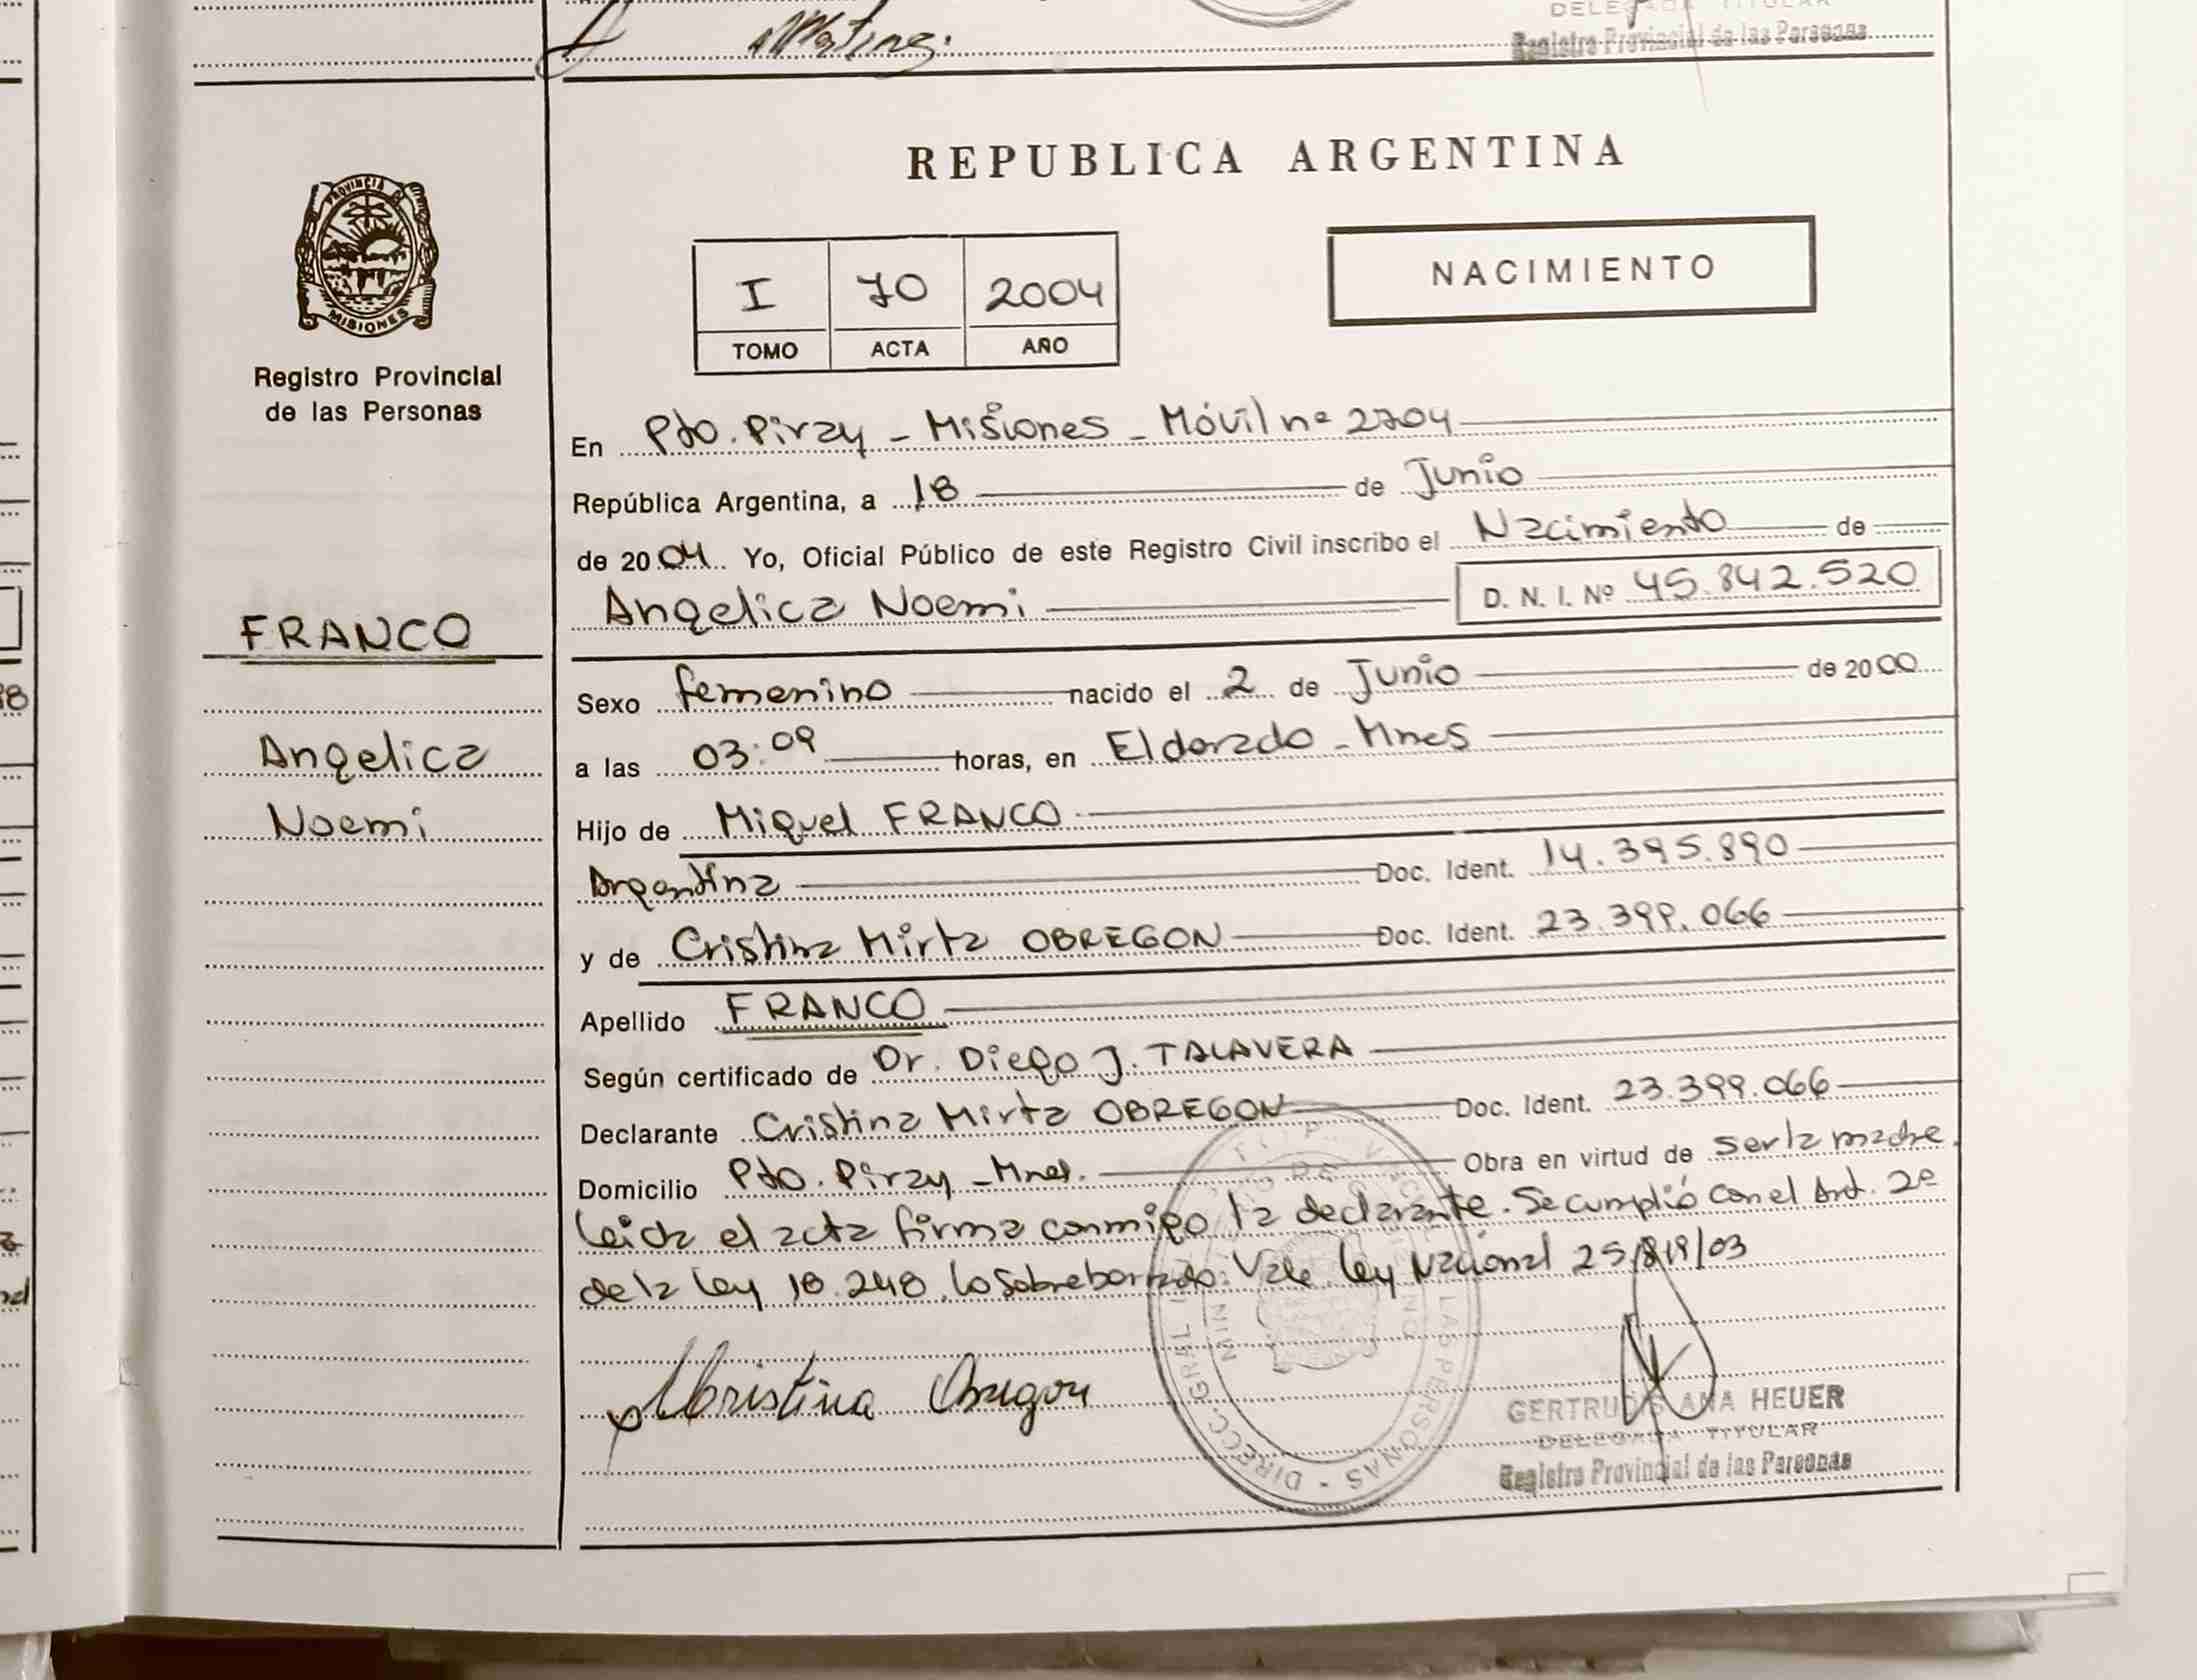 DELEGADA TITULAR
Registro Provincial de las Personas
REPUBLICA ARGENTINA
PROVINCIA DE
MISIONES
Registro Provincial
de las Personas
I 70 2004
TOMO ACTA AÑO
NACIMIENTO
En Pto. Piray - Misiones - Móvil nº 2704
República Argentina, a 18 de Junio
de 2004 Yo, Oficial Público de este Registro Civil inscribo el Nacimiento de
Angelica Noemi D. N. I. Nº 45.842.520
FRANCO
Angelica
Noemi
Sexo femenino nacido el 2 de Junio de 2000
a las 03:09 horas, en Eldorado - Mnes
Hijo de Miguel FRANCO
Argentina Doc. Ident. 14.395.890
y de Cristina Mirta OBREGON Doc. Ident. 23.399.066
Apellido FRANCO
Según certificado de Dr. Diego J. TALAVERA
Declarante Cristina Mirta OBREGON Doc. Ident. 23.399.066
Domicilio Pto. Piray - Mnes. Obra en virtud de ser la madre.
Leida el acta firma conmigo la declarante. Se cumplió con el Art. 2º
de la Ley 18.248. Lo sobreborrado: Vale. Ley Nacional 25.819/03
GERTRUDIS ANA HEUER
DELEGADA TITULAR
Registro Provincial de las Personas